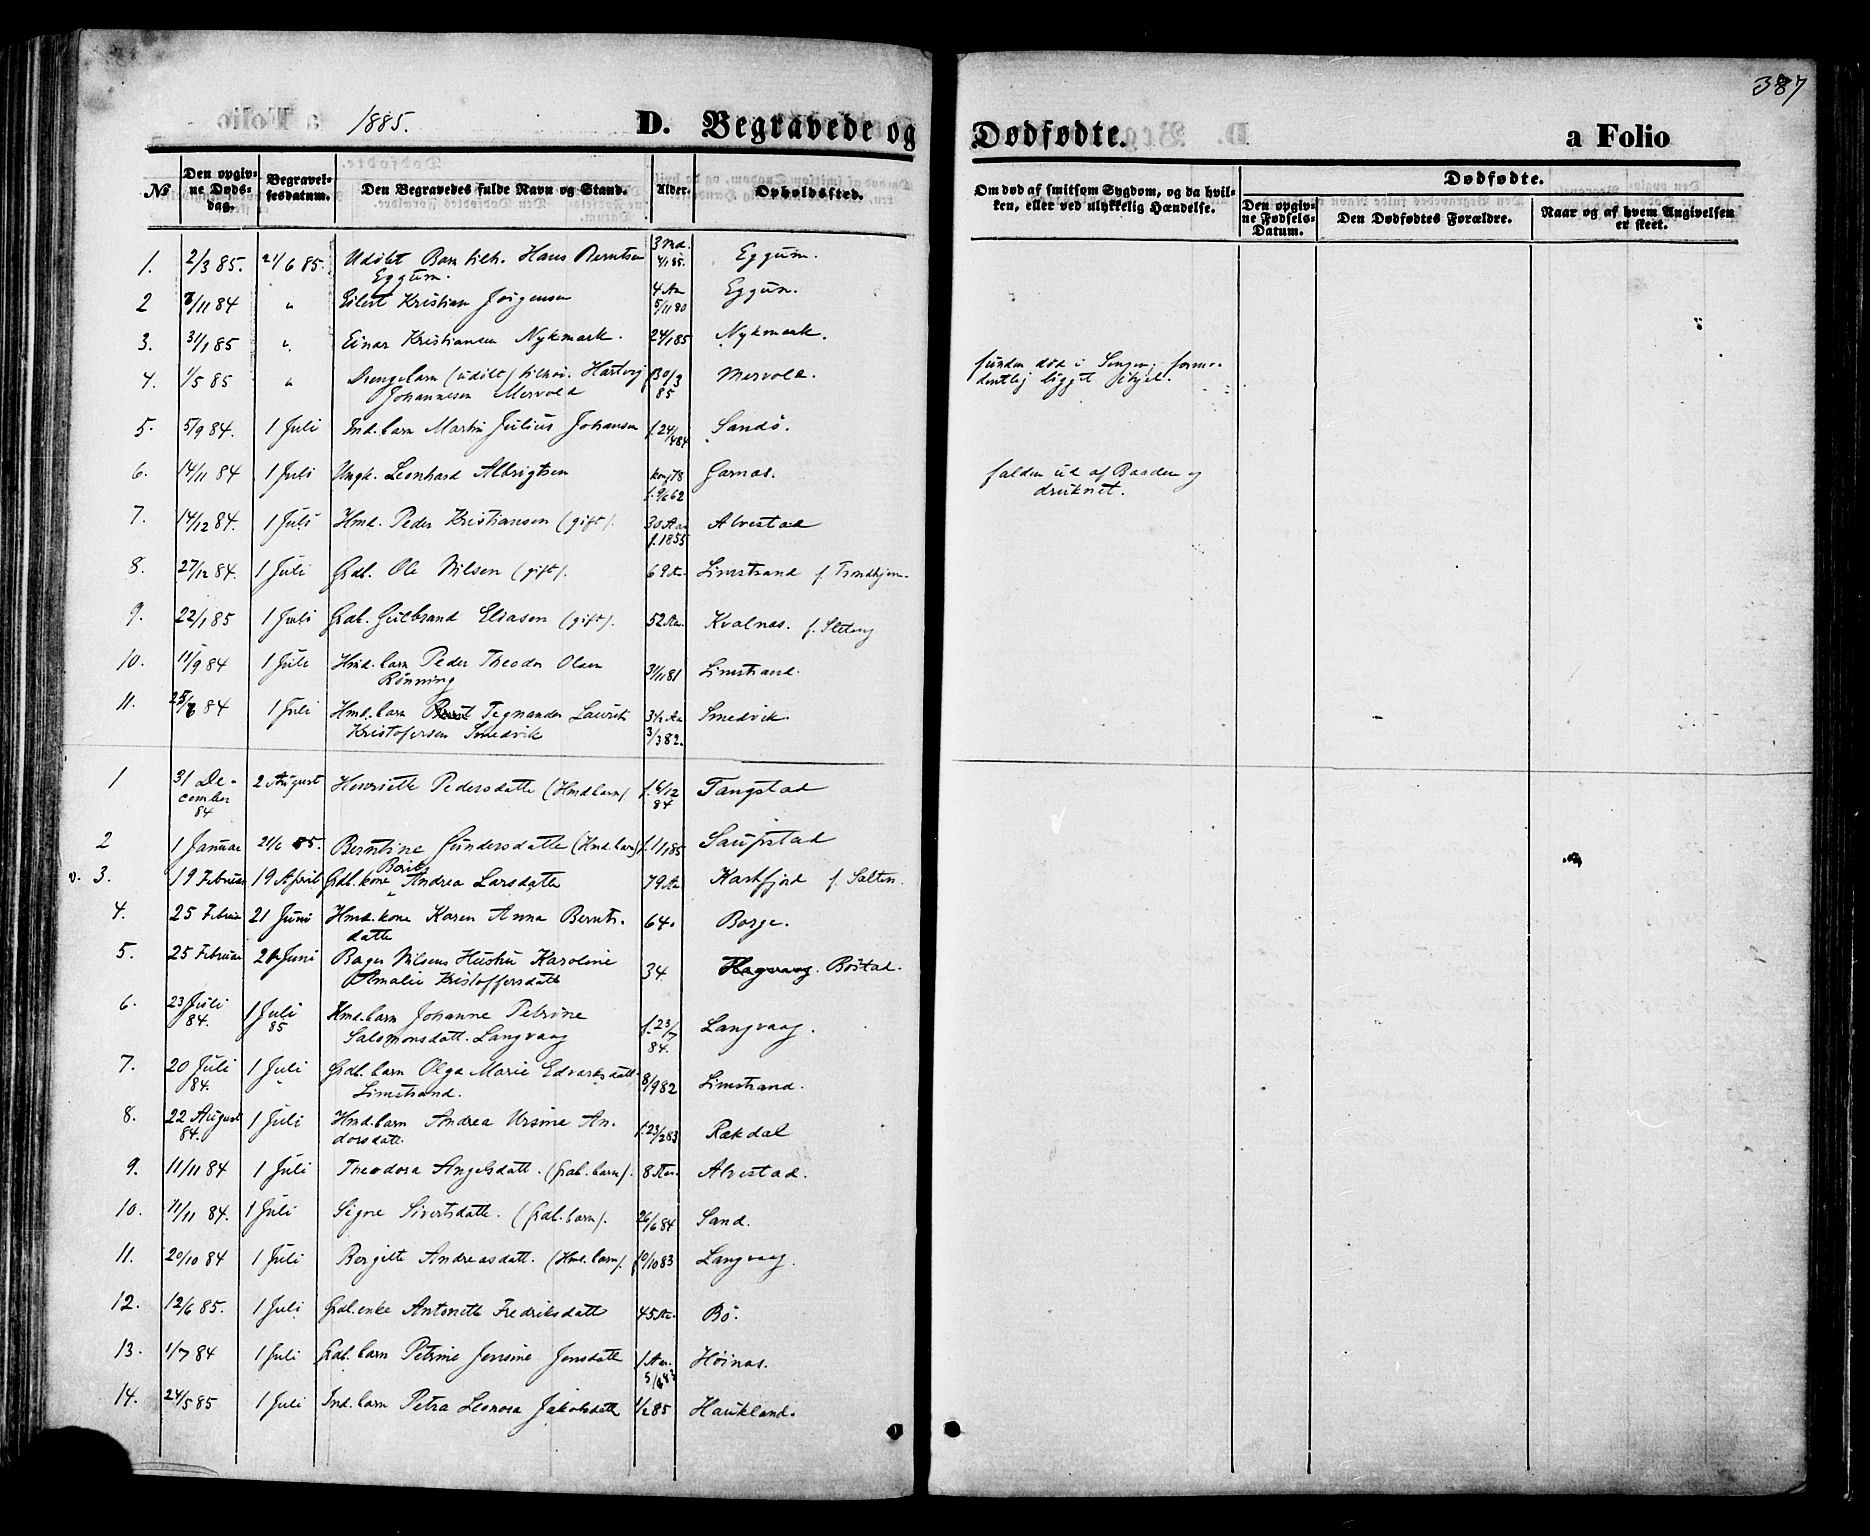 387
1885.
D. Begravede og Dødfødte.
a Folio
№
Den opgivne Dødsdag.
Begravelsesdatum.
Den Begravedes fulde Navn og Stand.
Alder.
Opholdssted.
Om død af smitsom Sygdom, og da hvilken, eller ved ulykkelig Hændelse.
Dødfødte.
Den opgivne Fødsels-Datum.
Den Dødfødtes Forældre.
Naar og af hvem Angivelsen er skeet.
1. 2/3 85. 21/6 85. Udøbt Barn tilh. Hans Berntsen 3 Md. 4/1 85. Eggum.
Eggum.
2 /11 84 " Eilert Kristian Jørgensen 4 Aar 5/11 80 Eggum.
3. 31/1 85 " Einar Kristiansen Nykmark. 24/1 85 Nykmark.
4. 1/5 85 " Drengebarn (udøbt) tilhør. Hartvig 30/3 85 Mervold. funden død i Sengen, formo-
Johannesen Mervold dentlig ligget ihjel.
5. 5/9 84. 1 Juli Ind. barn Martin Julius Johansen f. 24/4 84 Sandø.
6. 14/11 84 1 Juli Ungk. Leonhard Albrigtsen f. 9/6 62 Garnas. falden ud af Baaden og
druknet.
7. 14/12 84. 1 Juli Hmd. Peder Kristiansen (gift). 30 Aar f. 1855 Alvestad
8. 27/12 84. 1 Juli Grdb. Ole Nilsen (gift). 69 A. Limstrand f. Trondhjem.
9. 22/1 85 1 Juli Grdb. Gulbrand Eliasen (gift). 52 Aar. Kvalnas. f.
10. 11/9 84 1 Juli Hmd. barn Peder Theodor Olsen 3/11 81 Limstrand.
Rønning
11. 25/ 84 1 Juli Hmd. barn Tegnander Laurits 3½ Aar 3/3 82. Smedvik.
Kristofersen Smedvik
1 31 De- 2 August Henriette Pedersdatte (Hmd barn). f. 6/12 84 Tangstad
cember
84
2 1 Januar 21/6 85. Berntine Gundersdatte (Hmd. barn) f. 1/1 85 Saupstad
v. 3. 19 Februar 19 April Grdb. kone Berit Andrea Larsdatte 79 Aar Kartfjord f. Salten.
4. 25 Februar 21 Juni Hmd. kone Karen Anna Bernts- 64. Borge.
datte
5. 25 Februar 21 Juni Bager Nilsens Hustru Karoline 34. Bøstad.
Amalie Kristoffersdatte
6. 23 Juli 84. 1 Juli 85 Hmd. barn Johanne Petrine f. 23/7 84. Langvaag.
Salomonsdatt. Langvaag
7. 20 Juli 84. 1 Juli Grdb. barn Olga Marie Edvardsdatt. 8/9 82 Limstrand.
Limstrand.
8. 22 August 84. 1 Juli Hmd. barn Andrea Ursine An- f. 23/2 83 Rækdal
dorsdatt.
9. 11/11 84 1 Juli Theodora Angelsdatt. (Grdb. barn). 8 Aar. Alvestad.
10. 11/11 84. 1 Juli Signe Sivertsdatte. (Grdb. barn). 26/6 84 Sand.
11. 20/10 84 1 Juli Bergitte Andreasdatt. (Hmd. barn). 10/10 83 Langvaag.
12. 12/6 85. 1 Juli Grdb. enke Antonette Fredriksdatte 45 Aar. Bø.
13. 1/7 84 1 Juli Grdb. barn Petrine Jensine Jensdatte 1 Aar. Høinas.
14. 24/5 85 1 Juli Ind. barn Petra Leonora Jakobsdatte 1/2 85 Haukland.